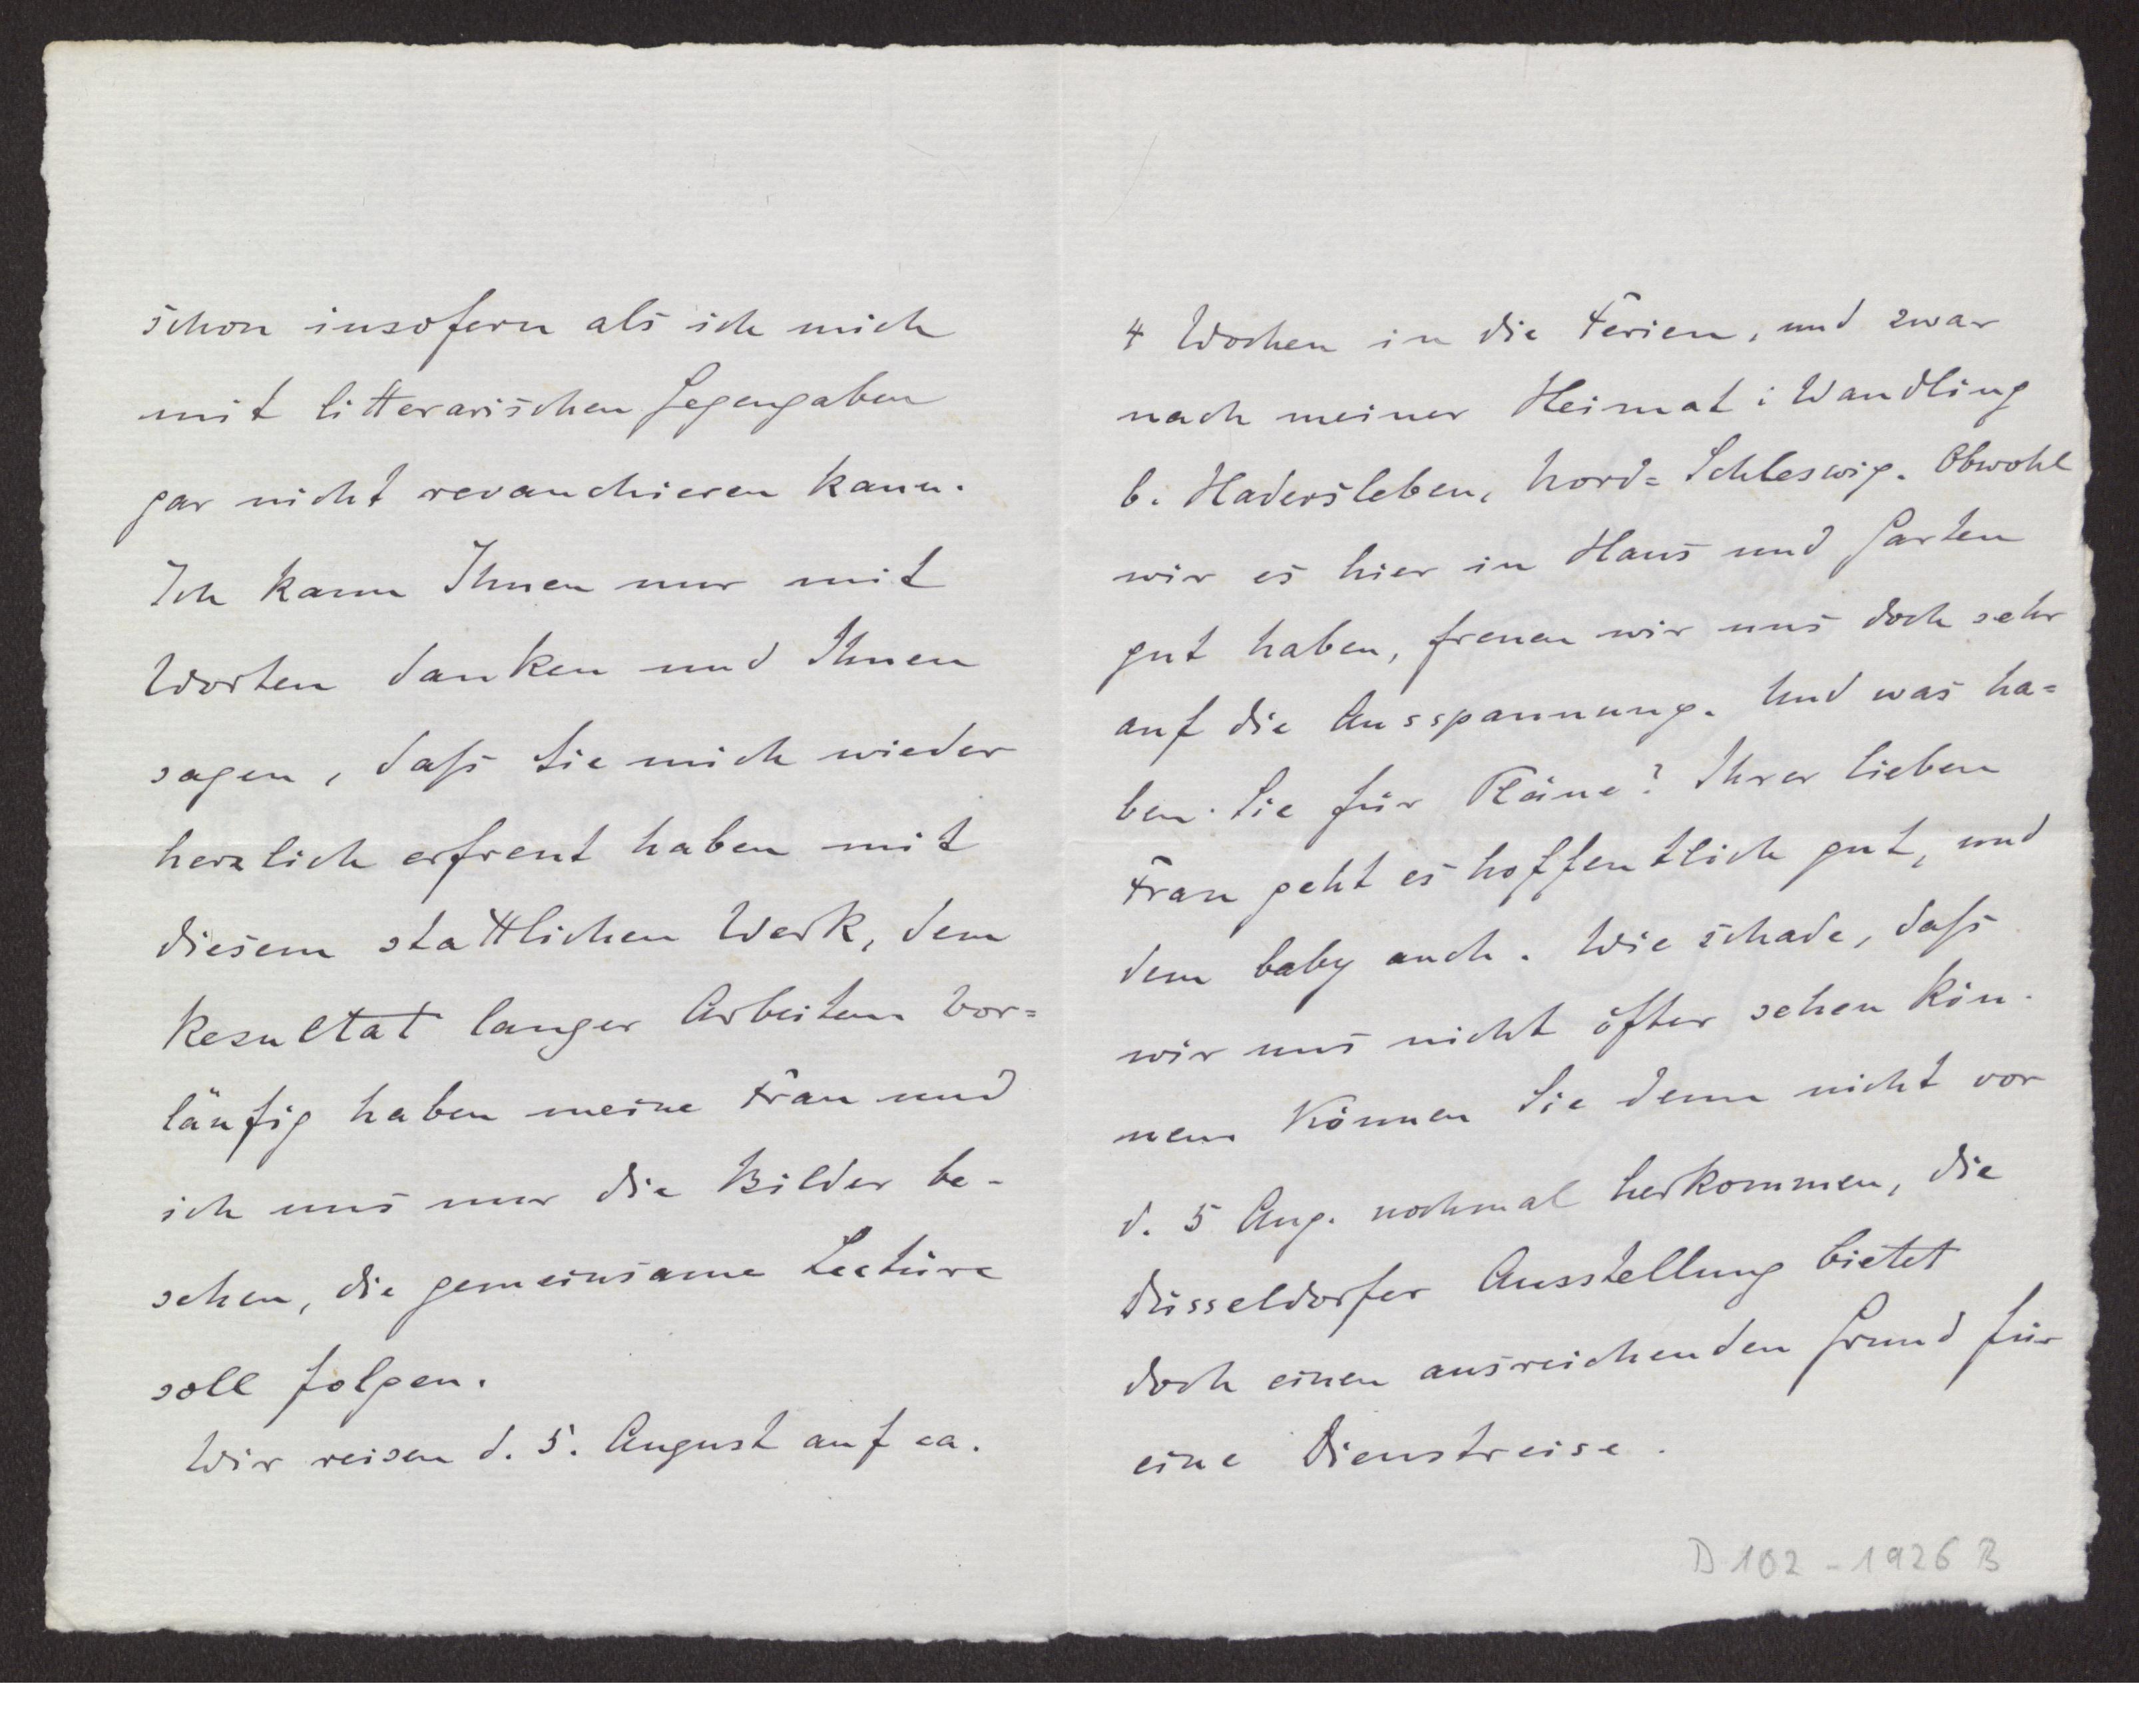 schon insofern als ich mich
mit litterarischen Gegengaben
gar nicht revanchieren kann.
Ich kann Ihnen nur mit
Worten danken und Ihnen
sagen, daß Sie mich wieder
herzlich erfreut haben mit
diesem stattlichen Werk, dem
Resultat langer Arbeiten. Vor=
läufig haben meine Frau und
ich uns nur die Bilder be-
sehen, die gemeinsame Lectüre
soll folgen.
Wir reisen d. 5. August auf ca.
4 Wochen in die Ferien, und zwar
nach meiner Heimat: Wandling
b. Hadersleben, Nord=Schleswig. Obwohl
wir es hier in Haus und Garten
gut haben, freuen wir uns doch sehr
auf die Ausspannung. Und was ha=
ben Sie für Pläne? Ihrer lieben
Frau geht es hoffentlich gut, und
dem baby auch. Wie schade, daß
wir uns nicht öfter sehen kön-
nen. Können Sie denn nicht vor
d. 5 Aug. nochmal herkommen, die
Düsseldorfer Ausstellung bietet
doch einen ausreichenden Grund für
eine Dienstreise.
D 102 - 1926 B